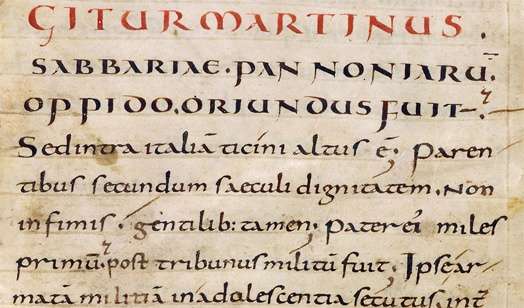 GITUR MARTINUS.
SABBARIAE. PANNONIARŪ.
OPPIDO. ORIUNDUS FUIT.
Sed intra italiā ticini altus ē. Paren
tibus secundum saeculi dignitatem. Non
infimis. gentilib: tamen. Pater ei miles
primū. post tribunus militū fuit. Ipse ar
matā militiā in adolescentia secutus, int